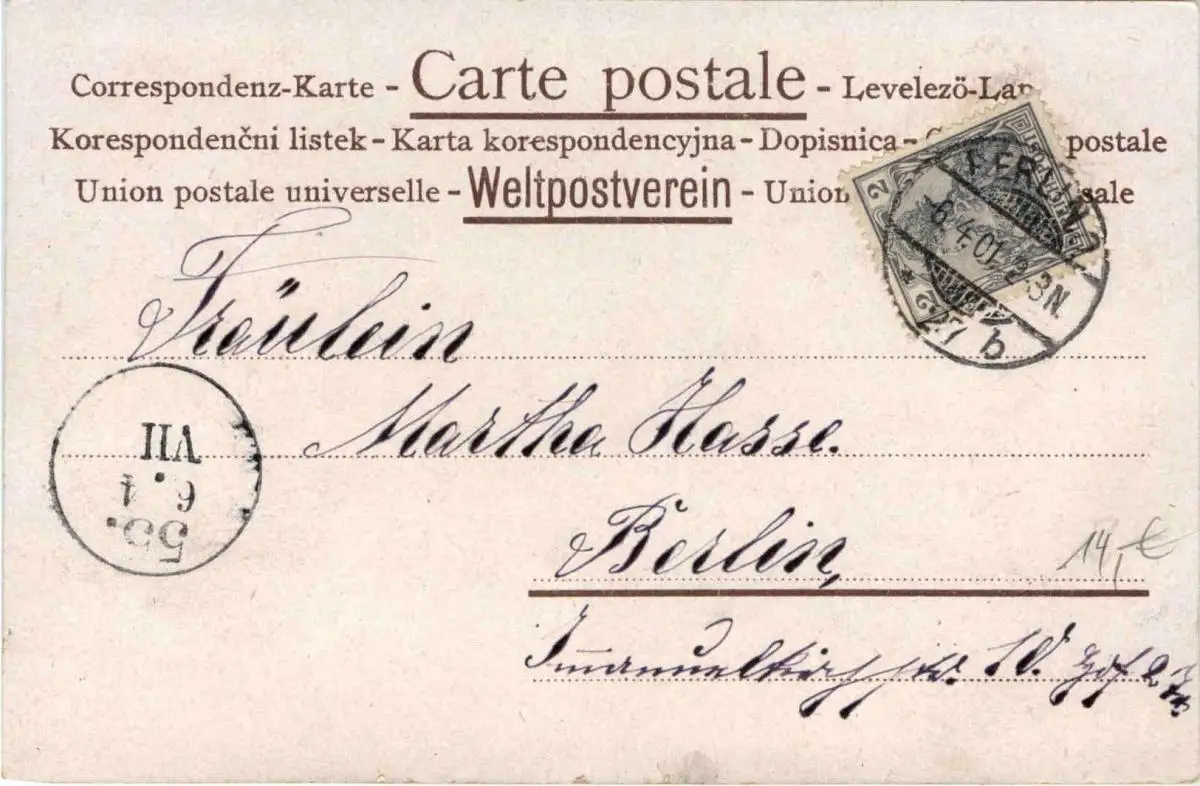 Correspondenz-Karte - Carte postale - Levelező-Lap
Korespondenčni listek - Karta korespondencyjna - Dopisnica - postale
Union postale universelle - Weltpostverein - Union
2
BERLIN
6.4.01. 3-N.
* 27 b
Fräulein
Martha Hasse.
Berlin,
Immanuelkirchstr. 10. Hof 2
14,- €
55.
6. 4
VII